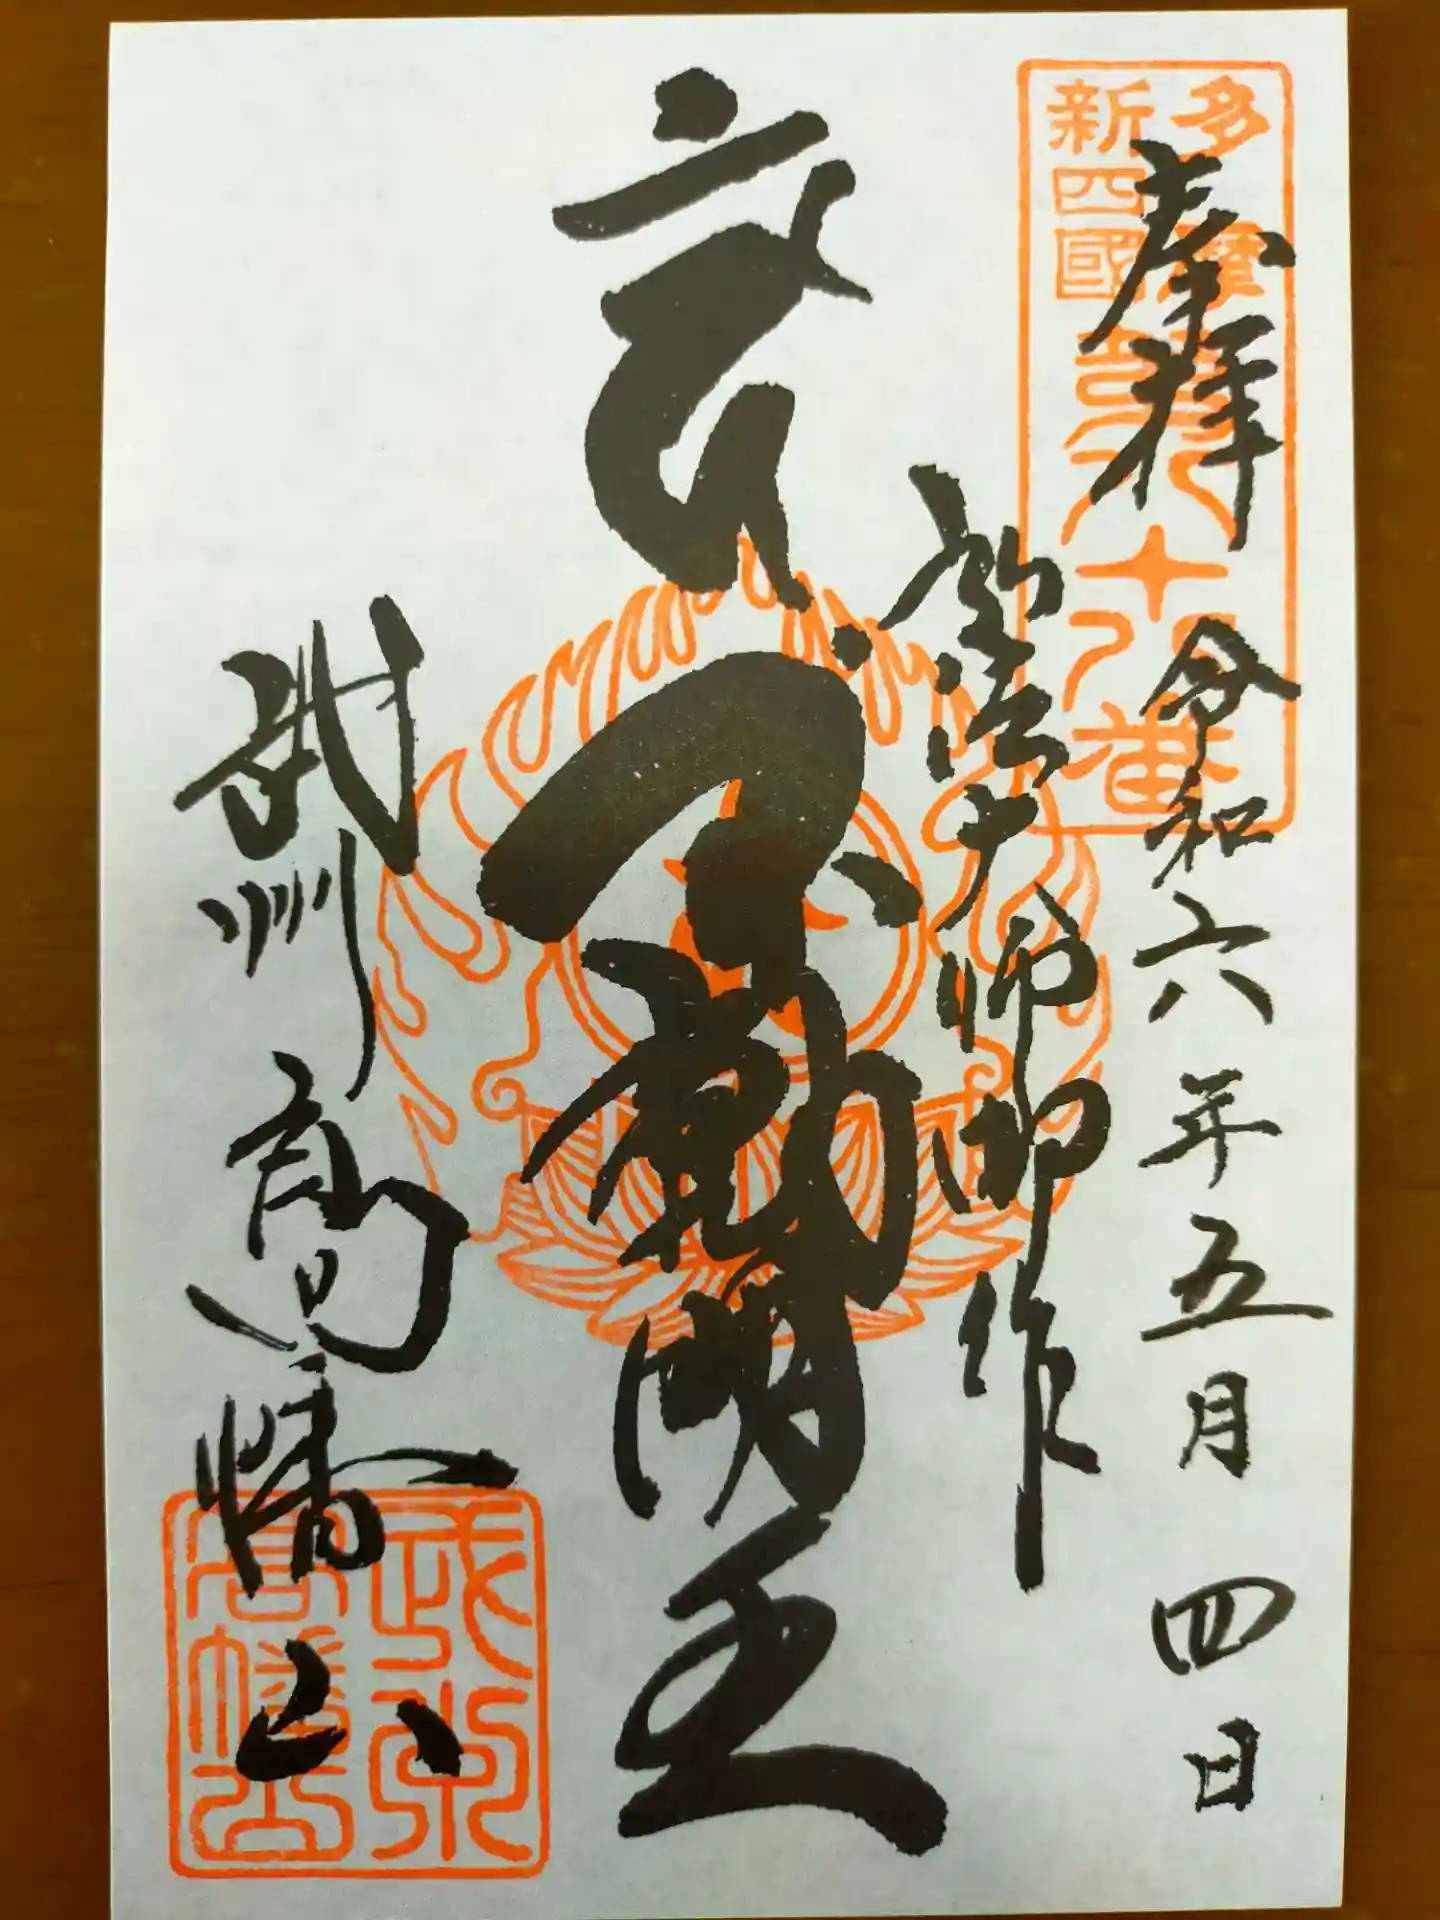 奉拝 令和六年五月四日
多摩
新四國
第八十八番
弘法大師御作
不動明王
武州高幡山
武州
高幡山